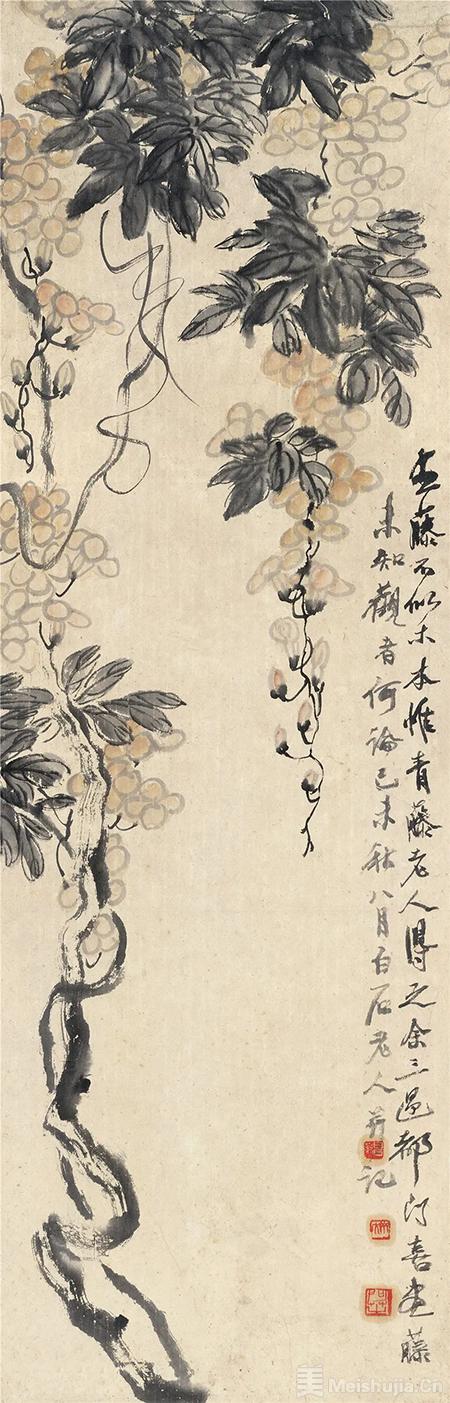 画藤不似木本惟青藤老人得之余三过都门喜画藤
未知觀者何論己未秋八月白石老人并記
美 Meishujia.Cn